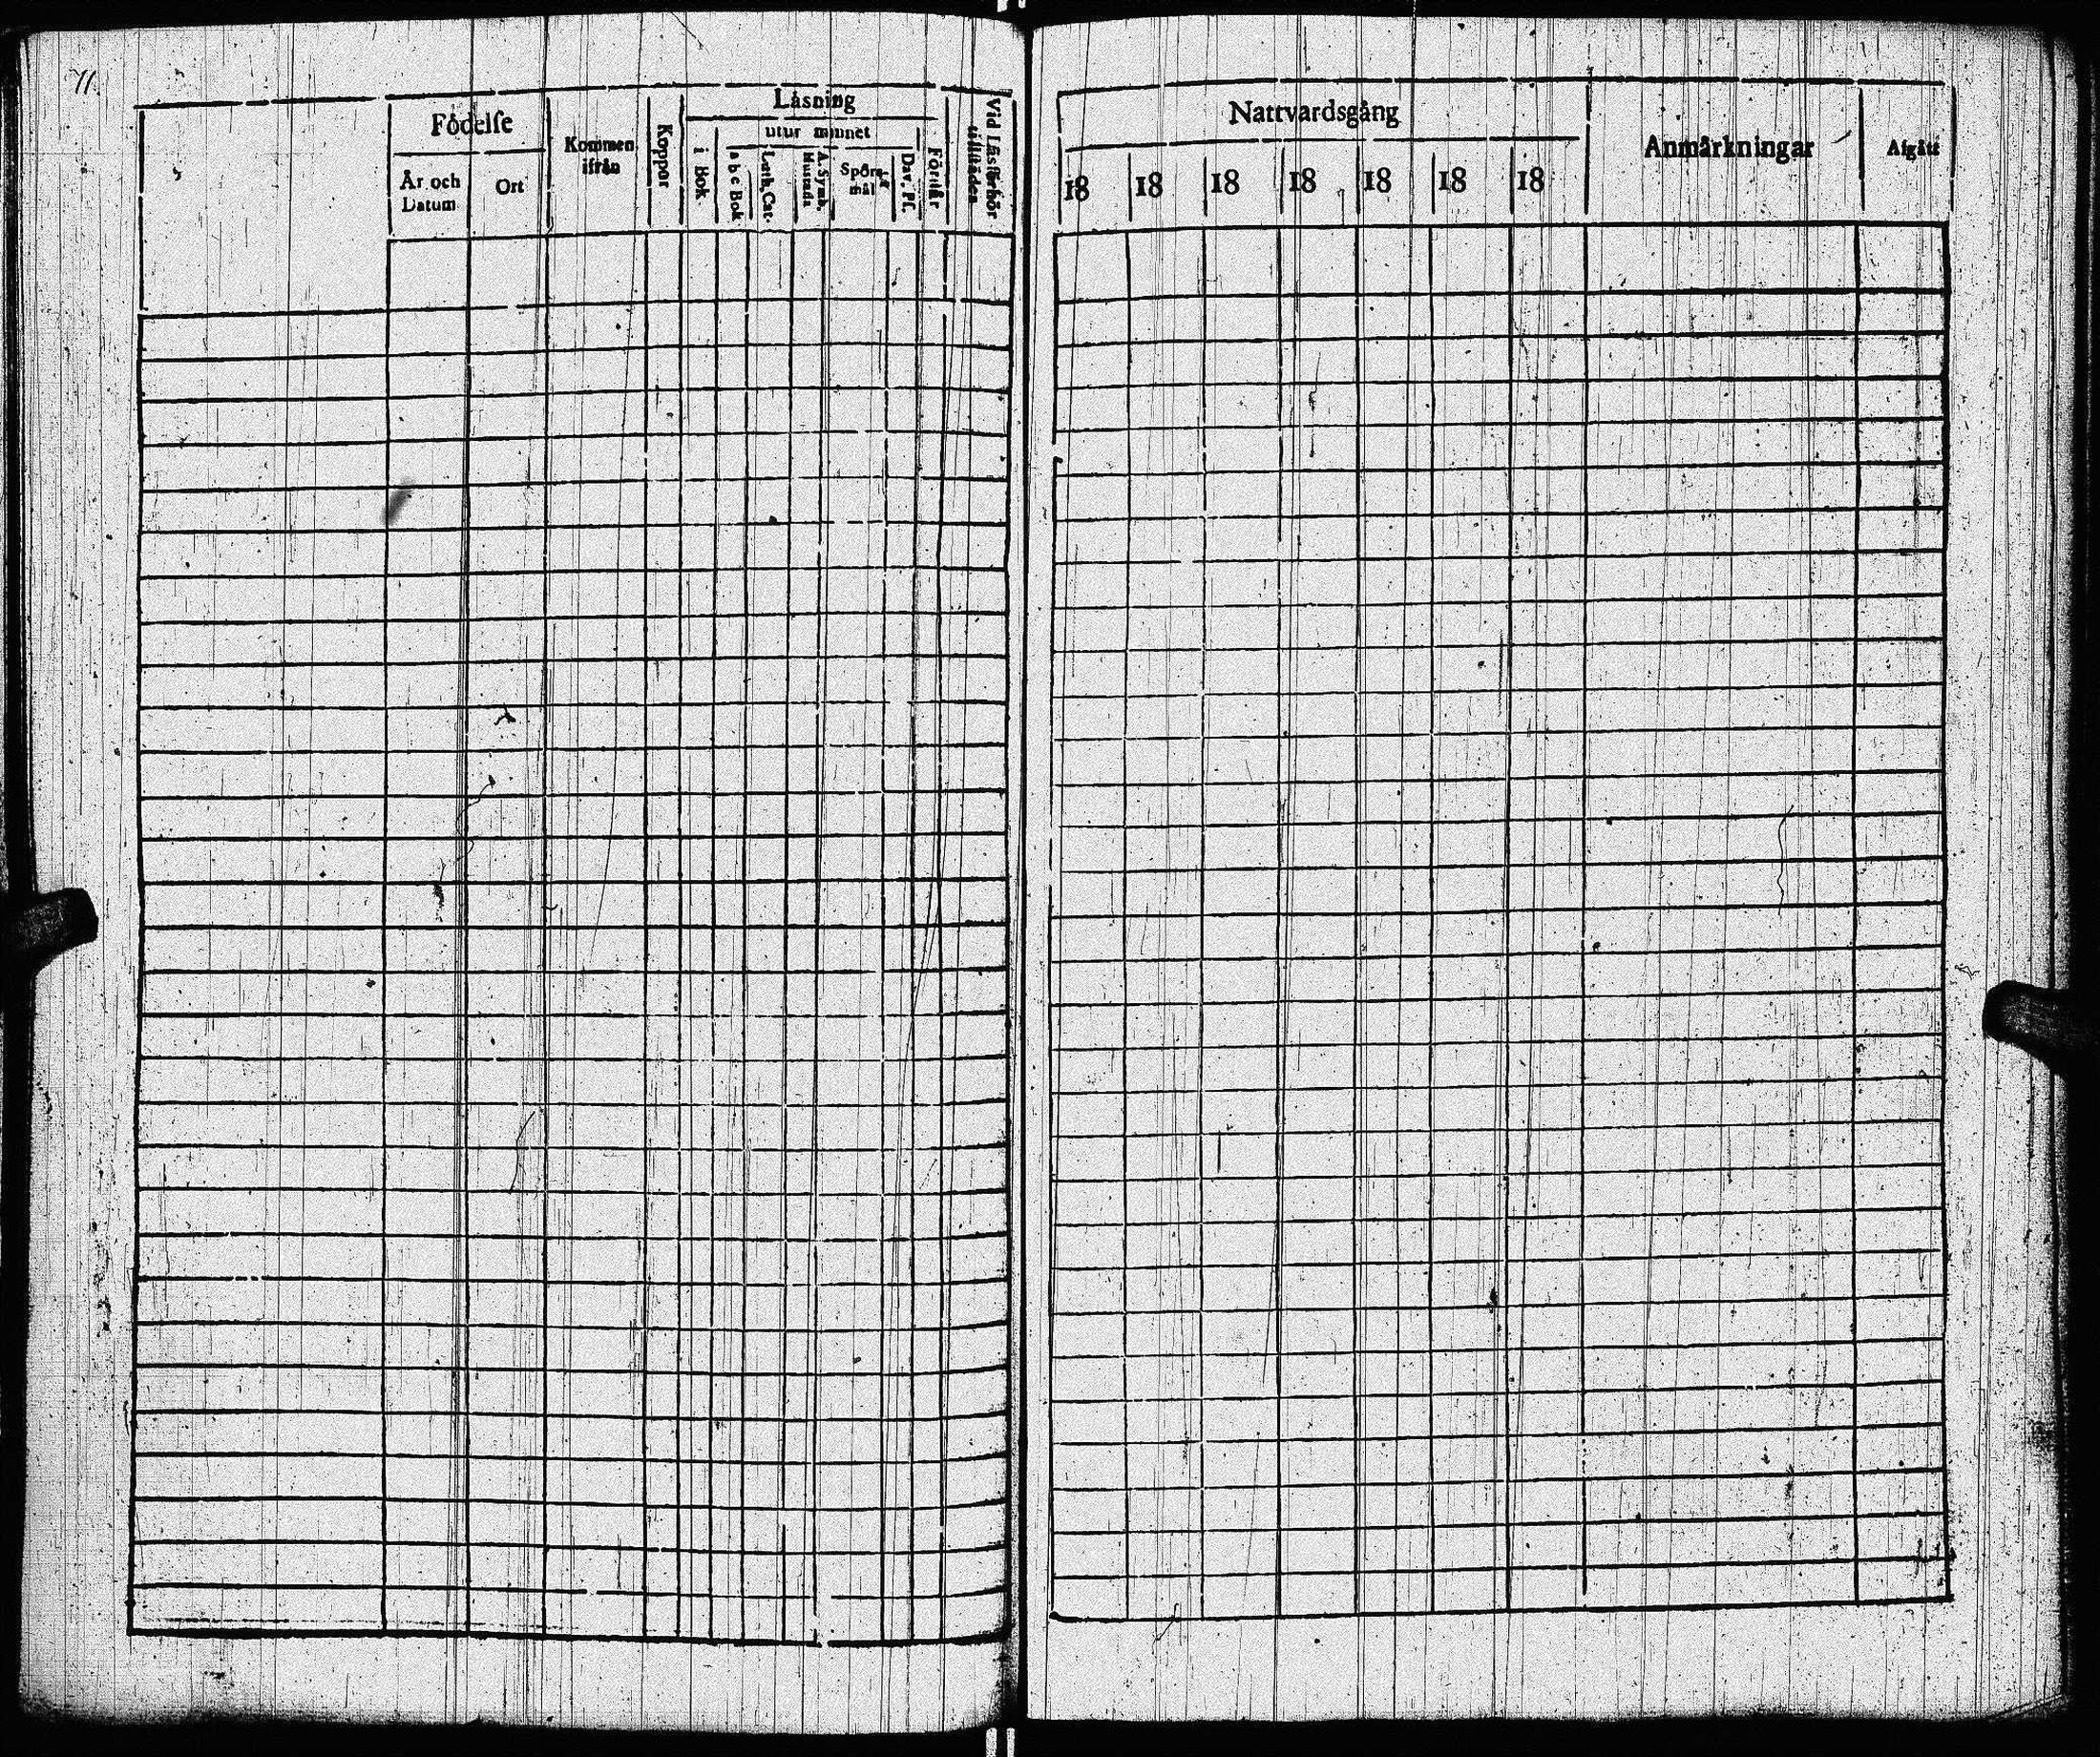 11.
Födelse
År och Datum
Ort
Kommen ifrån
Koppor
Läsning
i Bok
utur minnet
a b c Bok
Luth. Cat.
A. Symb.
Spörs-
mål
Dav. Ps.
Förstår
Vid Läsförhör
Nattvardsgång
18
18
18
18
18
18
18
Anmärkningar
Afgått